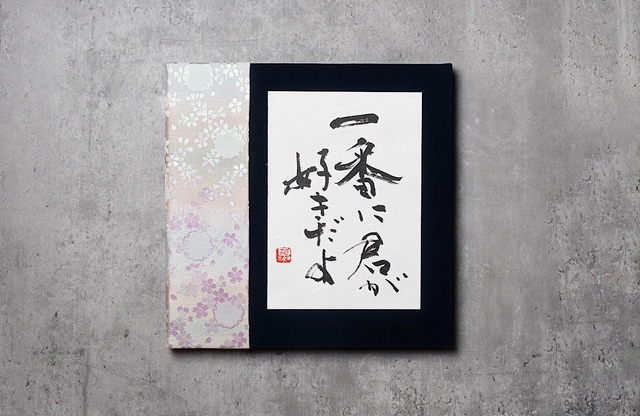 一番に君が
好きだよ